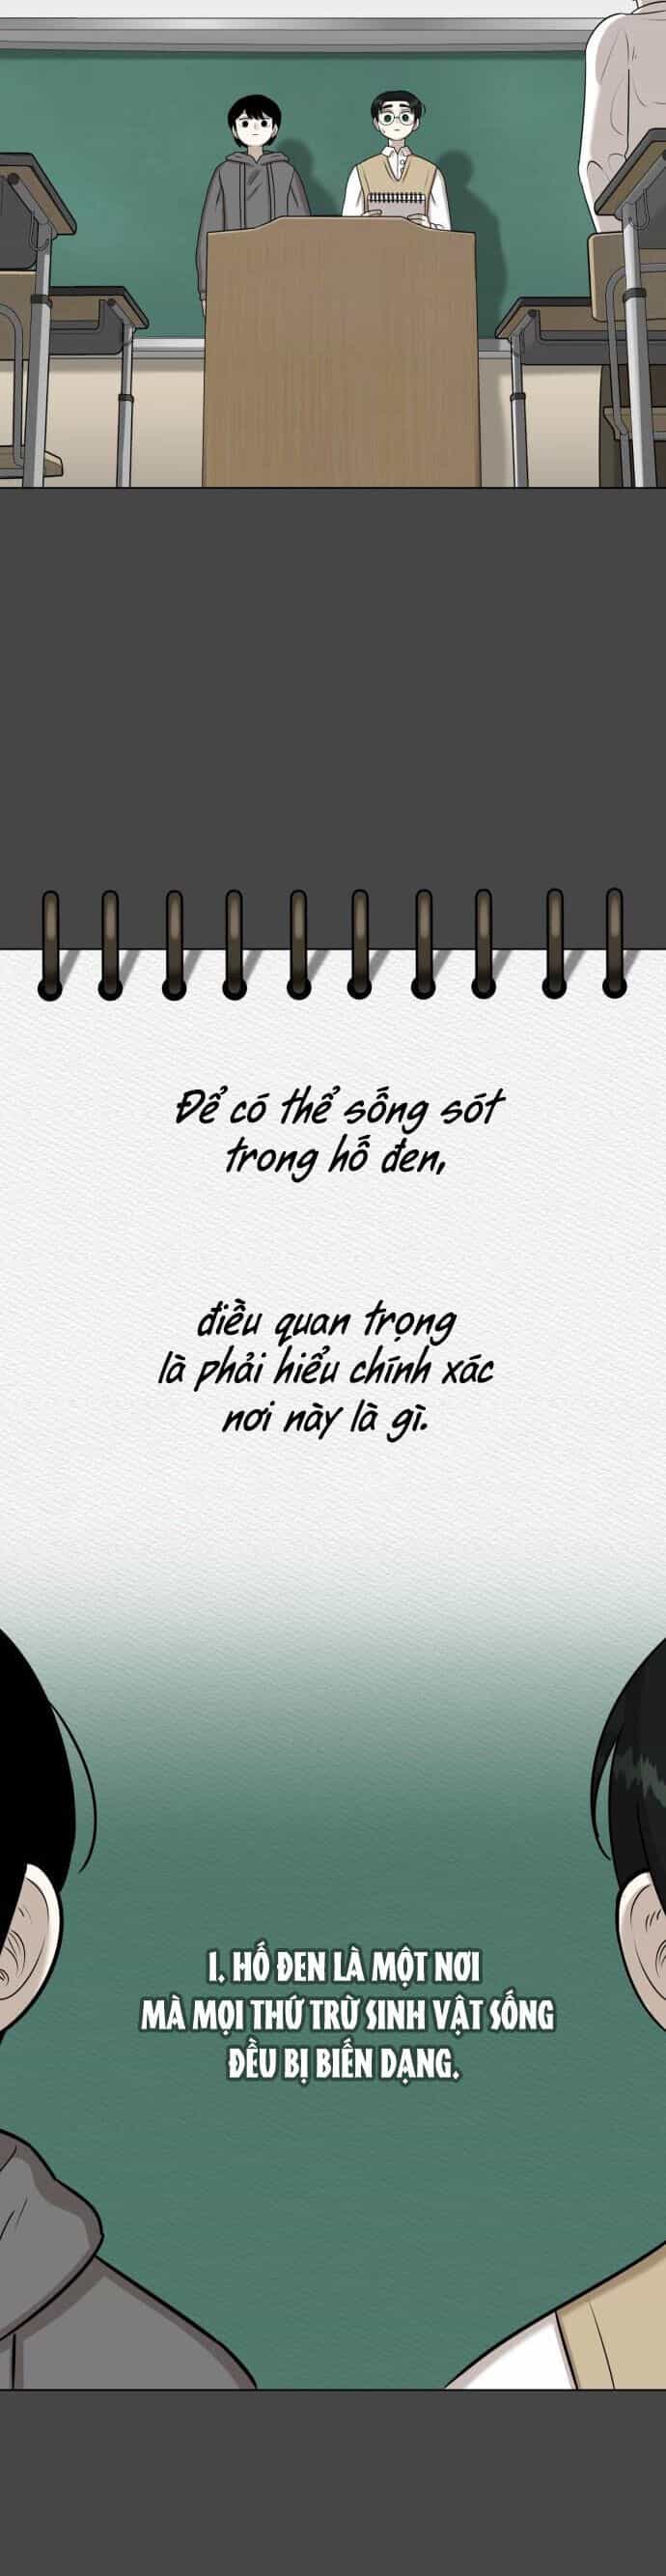 Để có thể sống sót
trong hố đen,
điều quan trọng
là phải hiểu chính xác
nơi này là gì.
1. HỐ ĐEN LÀ MỘT NƠI
MÀ MỌI THỨ TRỪ SINH VẬT SỐNG
ĐỀU BỊ BIẾN DẠNG.